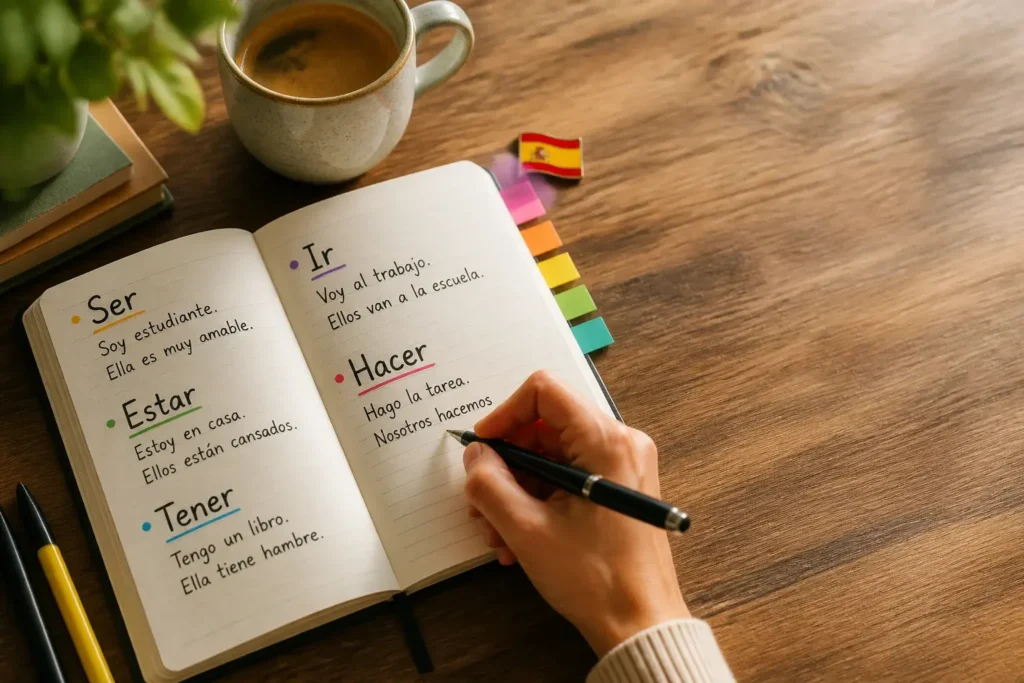 Ser
Soy estudiante.
Ella es muy amable.
Estar
Estoy en casa.
Ellos están cansados.
Tener
Tengo un libro.
Ella tiene hambre.
Ir
Voy al trabajo.
Ellos van a la escuela.
Hacer
Hago la tarea.
Nosotros hacemos